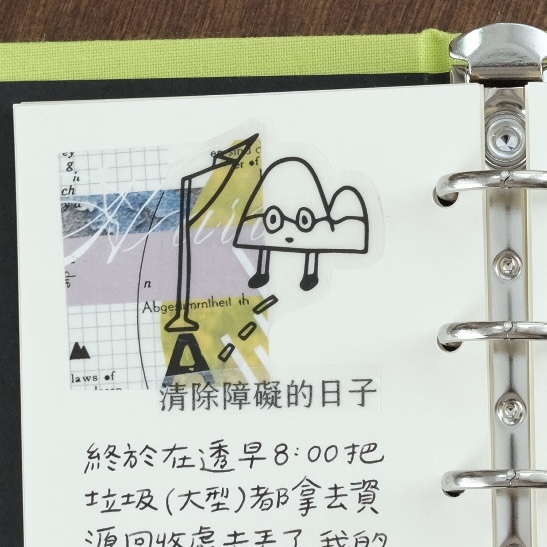 ey
g
in
ch
y a
er of
n
Abgesammlheit ih
laws of
清除障礙的日子
終於在透早8:00把
垃圾(大型)都拿去資
源回收處去丟了 我的